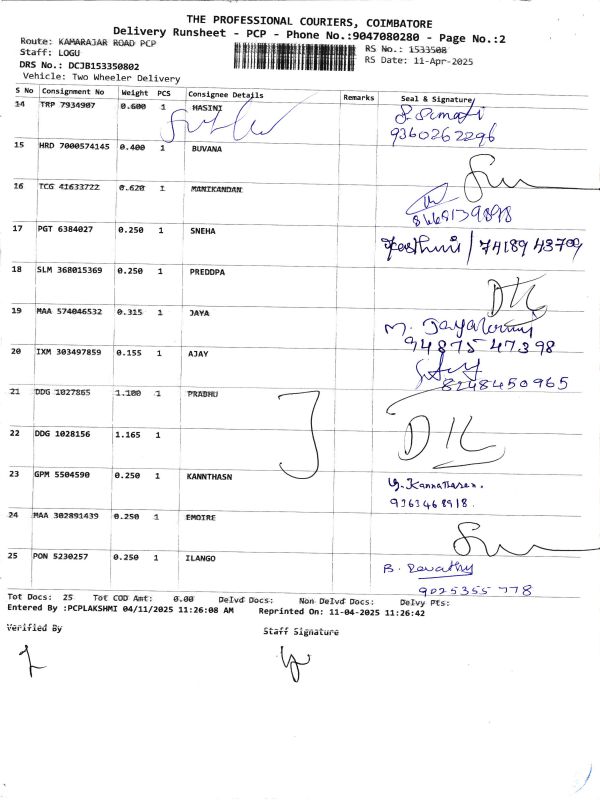 THE PROFESSIONAL COURIERS, COIMBATORE
Delivery Runsheet - PCP - Phone No.:9047080280 - Page No.:2
Route: KAMARAJAR ROAD PCP
RS No.: 1533508
Staff: LOGU
RS Date: 11-Apr-2025
DRS No.: DCJB153350802
Vehicle: Two Wheeler Delivery
S No Consignment No Weight PCS Consignee Details Remarks Seal & Signature
14 TRP 7934907 0.600 1 HASINI
9360262296
15 HRD 7000574145 0.400 1 BUVANA
16 TCG 41633722 0.620 1 MANIKANDAN
17 PGT 6384027 0.250 1 SNEHA
74189 43709
18 SLM 368015369 0.250 1 PREDDPA
19 MAA 574046532 0.315 1 JAYA
94875 47398
20 IXM 303497859 0.155 1 AJAY
8248450965
21 DDG 1027865 1.100 1 PRABHU
22 DDG 1028156 1.165 1
23 GPM 5504590 0.250 1 KANNTHASN
Y. Kannathasan.
9363468918.
24 MAA 302891439 0.250 1 EMOIRE
25 PON 5230257 0.250 1 ILANGO
B. Revathy
9025355 778
Tot Docs: 25 Tot COD Amt: 0.00 Delvd Docs: Non Delvd Docs: Delvy Pts:
Entered By :PCPLAKSHMI 04/11/2025 11:26:08 AM Reprinted On: 11-04-2025 11:26:42
Verified By
Staff Signature